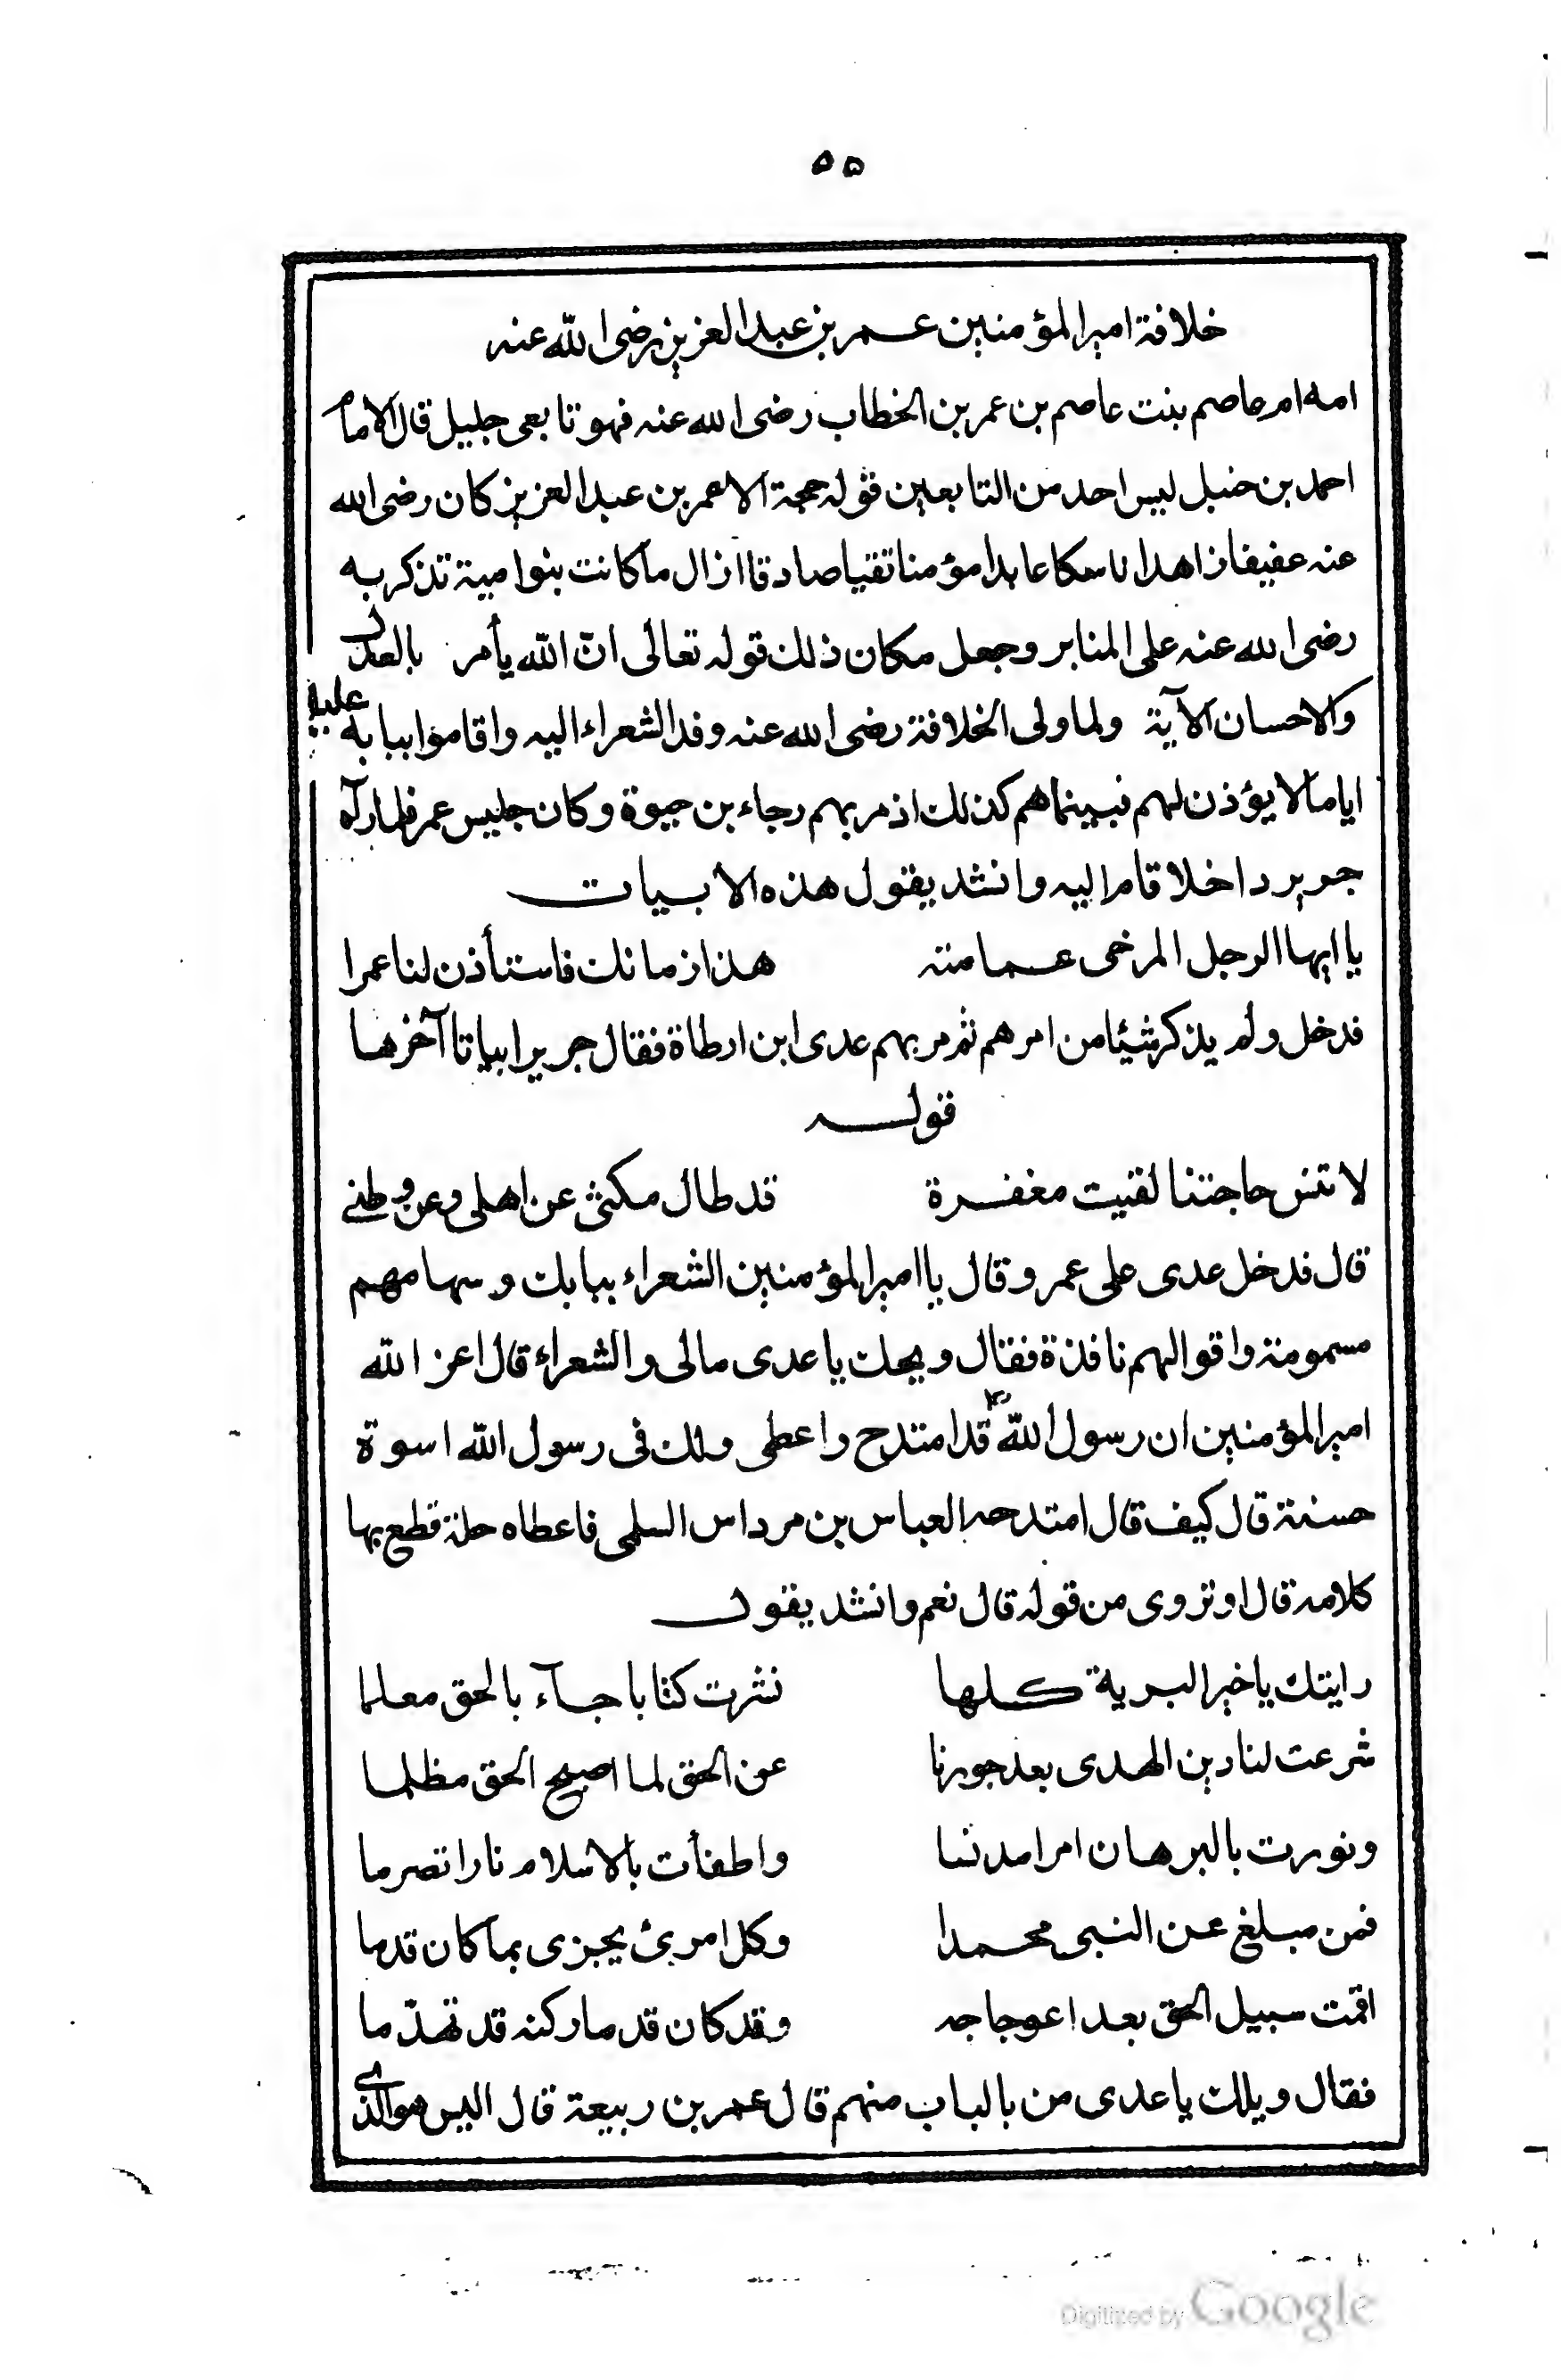 ٥٥
خلافة امير المؤمنين عمر بن عبد العزيز رضى الله عنه
امه ام عاصم بنت عاصم بن عمر بن الخطاب رضى الله عنه فهو تابعى جليل قال الامام
احمد بن حنبل ليس احد من التابعين قوله حجة الا عمر بن عبد العزيز كان رضى الله
عنه عفيفا زاهدا ناسكا عابدا مؤمنا تقيا صادقا ازال ما كانت بنوا مية تذكر به
رضى الله عنه على المنابر وجعل مكان ذلك قوله تعالى انّ الله يأمر بالعدل
والاحسان الآية ولما ولى الخلافة رضى الله عنه وفد الشعراء اليه واقاموا ببابه عليه
اياما لا يؤذن لهم فبينما هم كذلك اذ مر بهم رجاء بن حيوة وكان جليس عمر فلما رآه
جرير داخلا قام اليه وانشد يقول هذه الابيات
يا ايها الرجل المرخى عمامته هذا زمانك فاستأذن لنا عمرا
فدخل ولم يذكر شيئا من امرهم ثم مر بهم عدى ابن ارطاة فقال جرير ابياتا آخرها
قوله
لا تنس حاجتنا لقيت مغفرة قد طال مكثى عن اهلى وعن وطنى
قال فدخل عدى على عمر وقال يا امير المؤمنين الشعراء ببابك وسهامهم
مسمومة واقوالهم نافذة فقال ويحك يا عدى مالى والشعراء قال اعز الله
امير المؤمنين ان رسول الله قد امتدح واعطى ولك فى رسول الله اسوة
حسنة قال كيف قال امتدحه العباس بن مرداس السلمى فاعطاه حلة قطع بها
كلامه قال اوتروى من قوله قال نعم وانشد يقول
رايتك يا خير البرية كلها نشرت كتابا جآء بالحق معلما
شرعت لنا دين الهدى بعد جورنا عن الحق لما اصبح الحق مظلما
ونورت بالبرهان امرا مدنسا واطفأت بالاسلام نارا تضرما
فمن مبلغ عن النبى محمدا وكل امرئ يجزى بما كان قدما
اقمت سبيل الحق بعد اعوجاجه وقد كان قدما ركنه قد تهدّما
فقال ويلك يا عدى من بالباب منهم قال عمر بن ربيعة قال اليس هو الذى
Digitized by Google